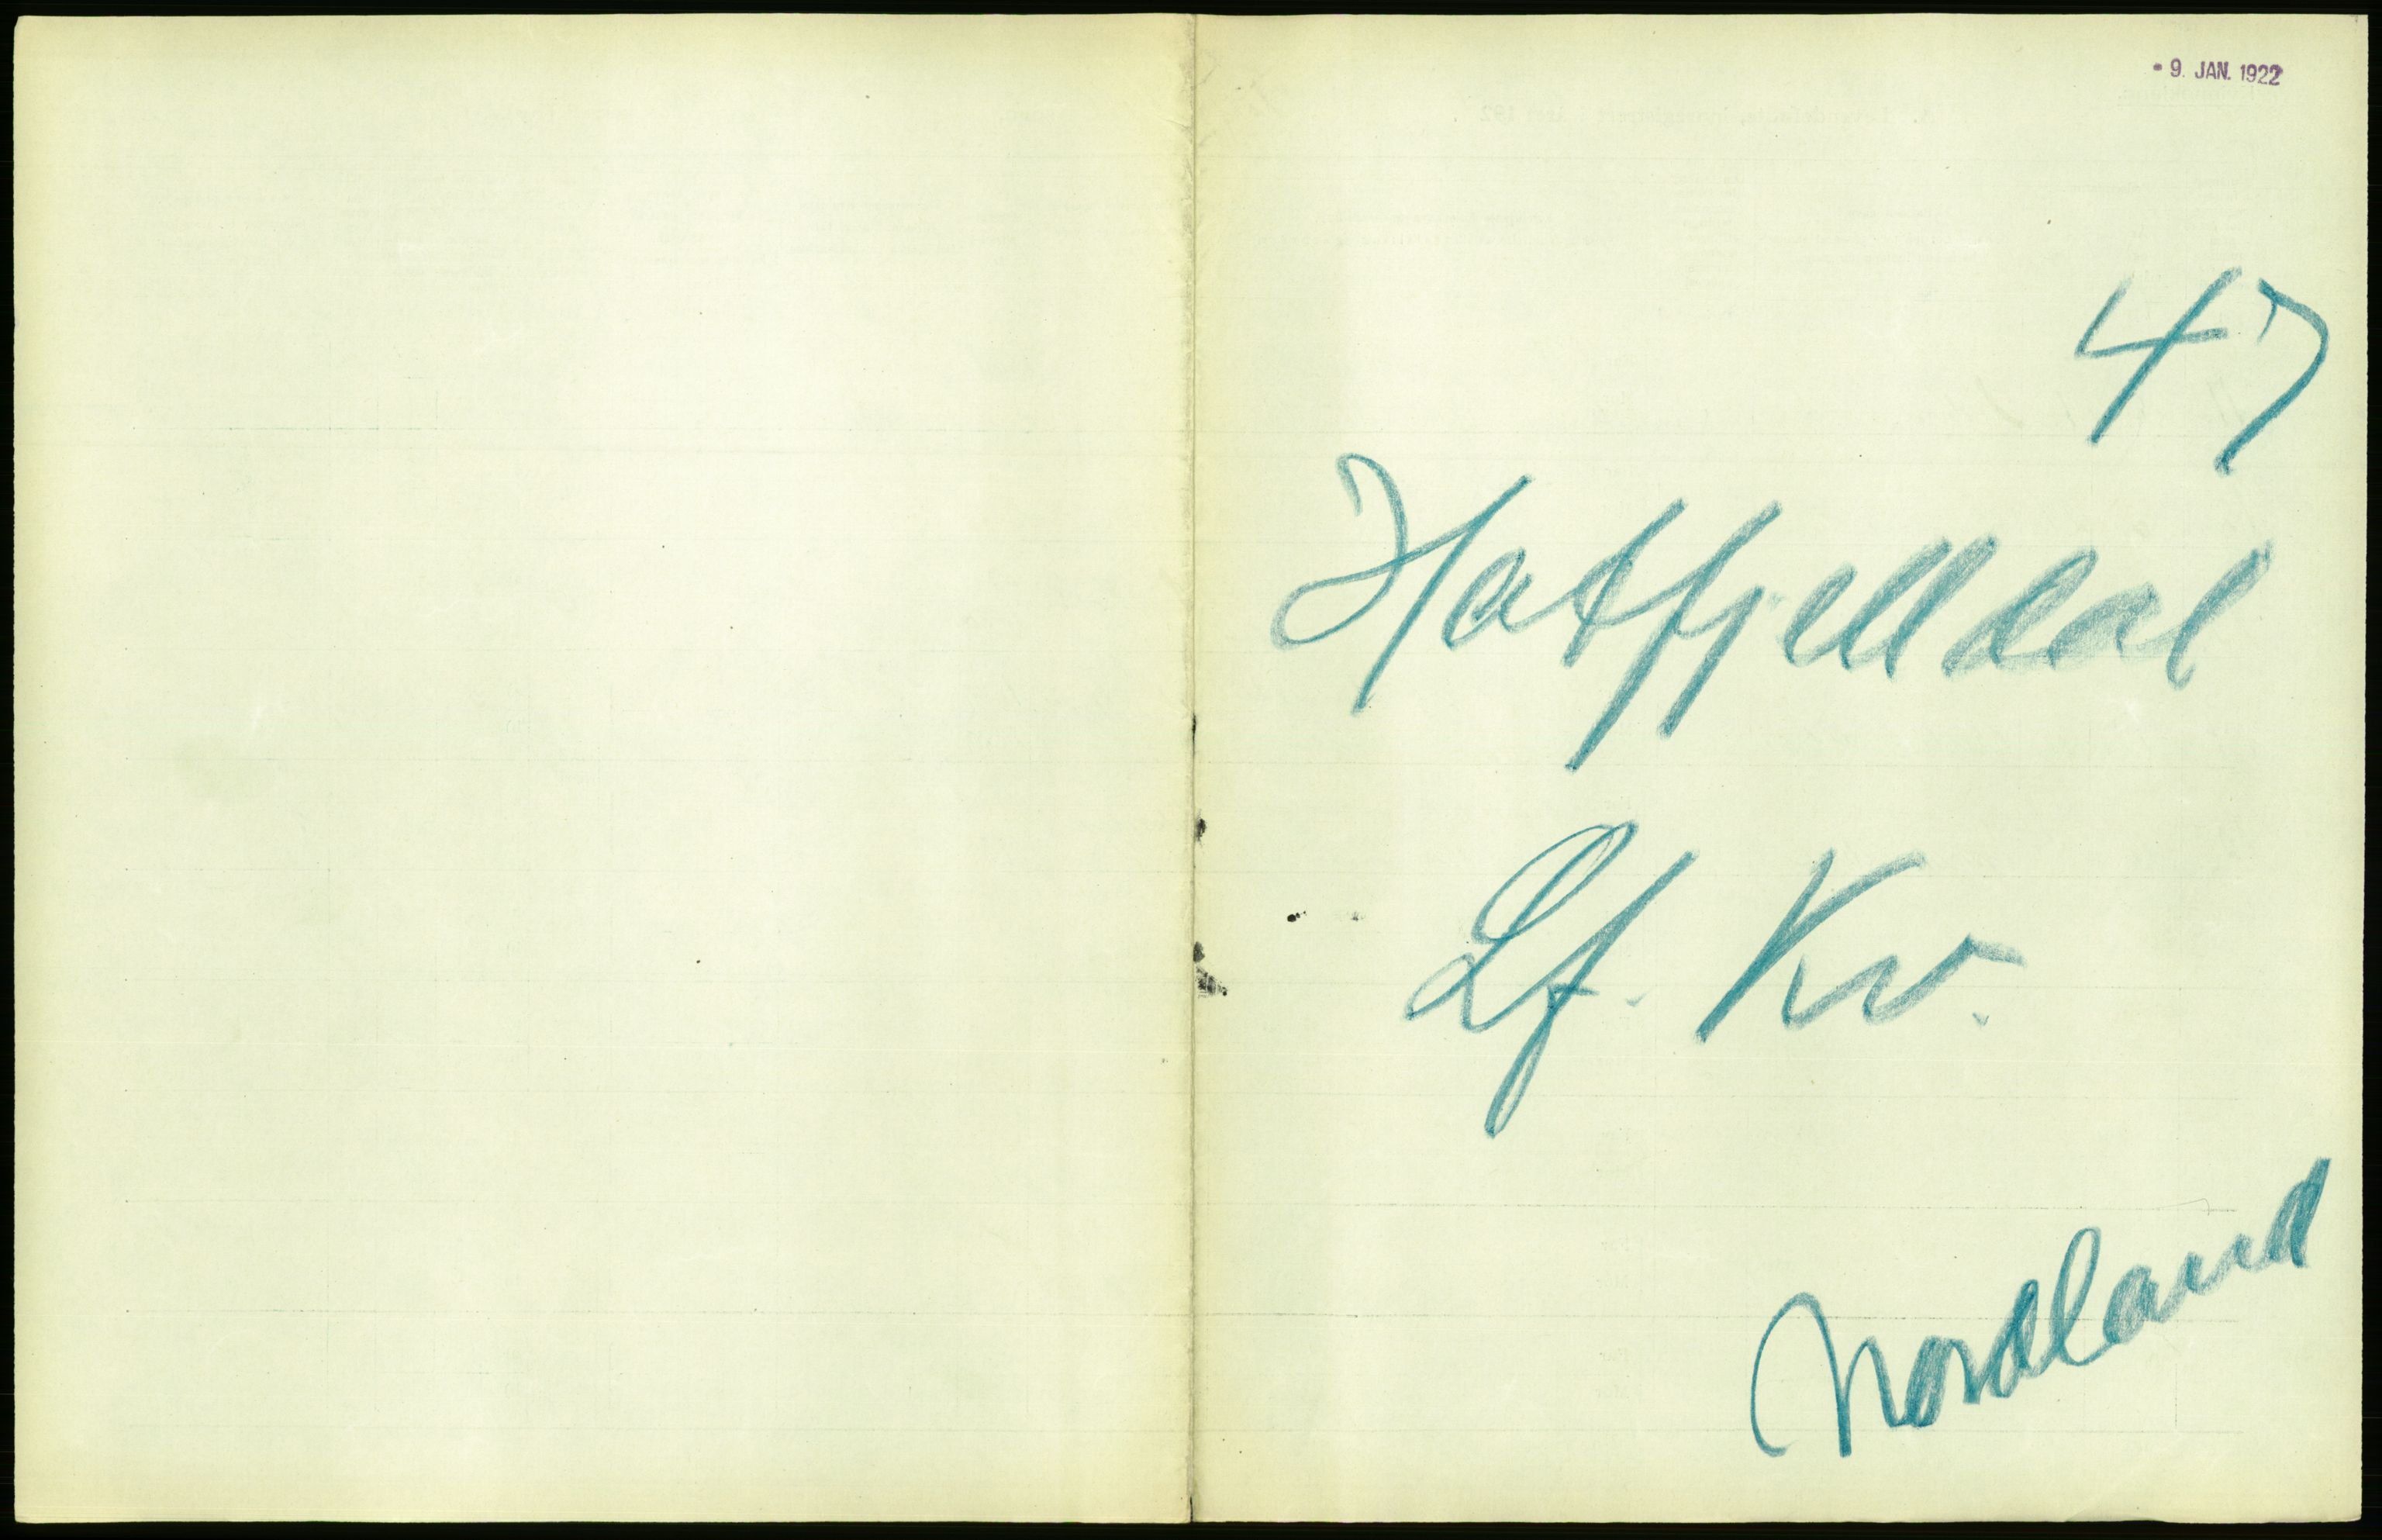 - 9. JAN. 1922
47
Hatfjelldal
Lf. Kv.
Nordland